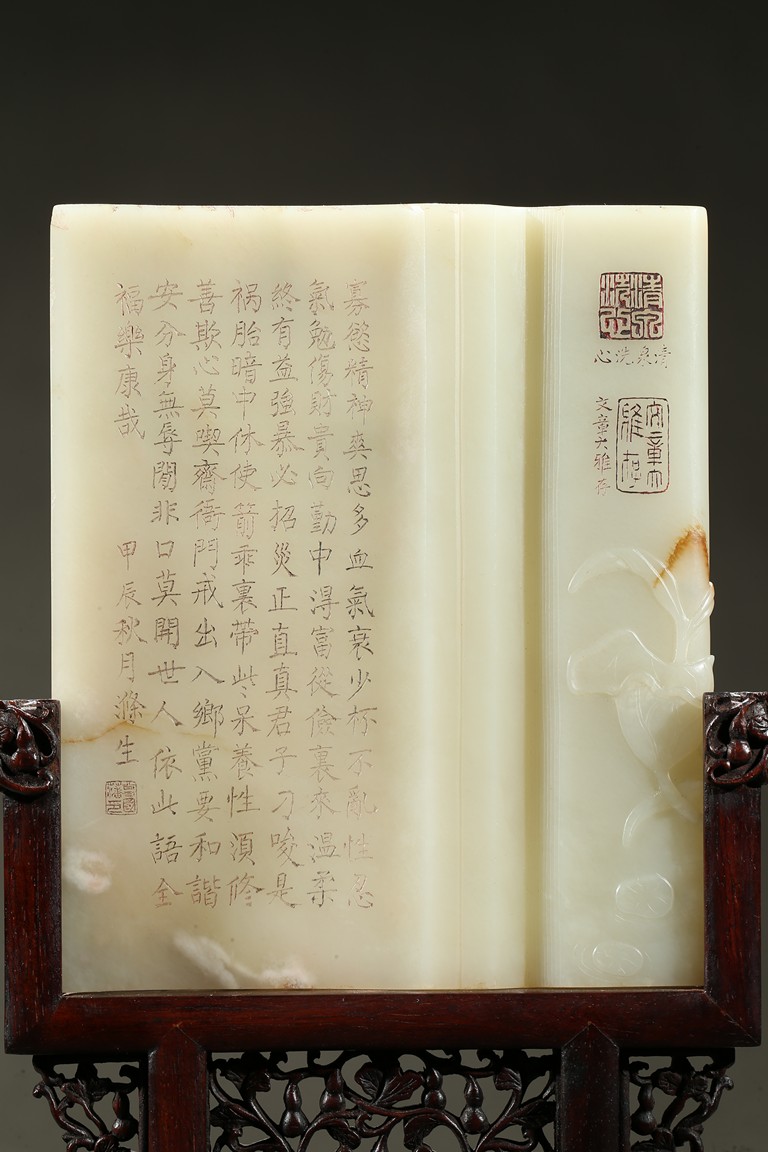 清泉洗心
清泉洗心
文章大雅存
文章大雅存
寡慾精神爽思多血氣衰少杯不亂性忍
氣勉傷財貴向勤中淂富從儉裏來温柔
終有益強暴必招災正直真君子刁唆是
祸胎暗中休使箭乖裏帶些呆養性湏修
善欺心莫喫齋衙門戒出入鄉黨要和諧
安分身無辱閒非口莫開世人依此語全
福樂康哉
甲辰秋月滌生